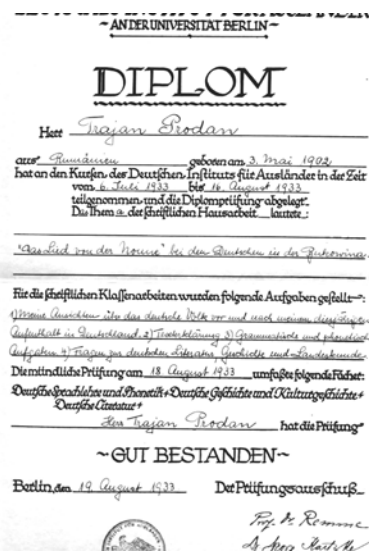 ~ AN DER UNIVERSITÄT BERLIN ~
DIPLOM
Herr Trajan Prodan
aus Rumänien geboren am 3. Mai 1902
hat an den Kursen des Deutschen Instituts für Ausländer in der Zeit
vom 6. Juli 1933 bis 16. August 1933
teilgenommen und die Diplomprüfung abgelegt.
Das Thema der schriftlichen Hausarbeit lautete:
"Das Lied von der Nonne" bei den Deutschen in der Bukowina.
Für die schriftlichen Klassenarbeiten wurden folgende Aufgaben gestellt:
1) Meine Ansichten über das deutsche Volk vor und nach meinem diesj.
Aufenthalt in Deutschland. 2) Texterklärung 3) Grammatische und phonetische
Aufgaben 4) Fragen zur deutschen Literatur, Geschichte und Landeskunde.
Die mündliche Prüfung am 18 August 1933 umfaßte folgende Fächer:
Deutsche Sprachlehre und Phonetik + Deutsche Geschichte und Kulturgeschichte +
Deutsche Literatur +
Herr Trajan Prodan hat die Prüfung
~ GUT BESTANDEN ~
Berlin, den 19. August 1933 Der Prüfungsausschuß
Prof. Dr. Remme